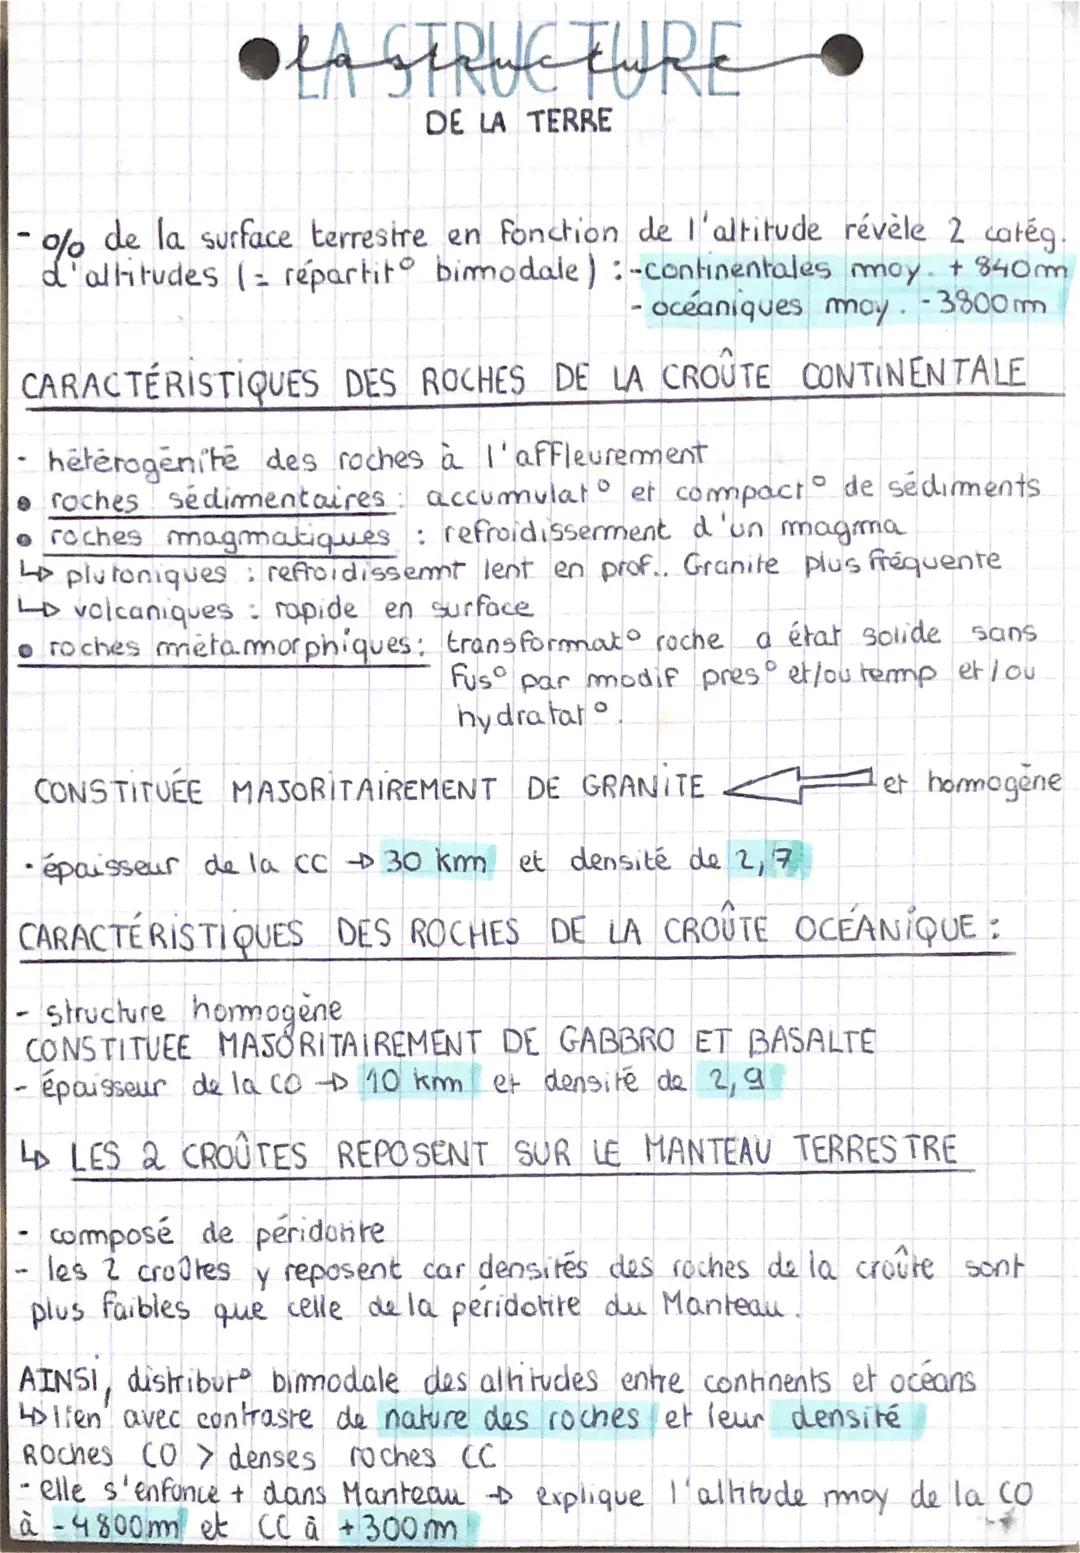 LA STRUCTURE
la structure
DE LA TERRE
- % de la surface terrestre en fonction de l'altitude révèle 2 catég.
d'altitudes (= répartit° bimodale) : - continentales moy. + 840m
- océaniques moy. - 3800m
CARACTÉRISTIQUES DES ROCHES DE LA CROÛTE CONTINENTALE
- hétérogénité des roches à l'affleurement
• roches sédimentaires : accumulat° et compact° de sédiments
• roches magmatiques : refroidissement d'un magma
↳ plutoniques : refroidissemnt lent en prof.. Granite plus fréquente
↳ volcaniques : rapide en surface
• roches métamorphiques : transformat° roche a état solide sans
fus° par modif pres° et/ou temp et/ou
hydratat°.
CONSTITUÉE MAJORITAIREMENT DE GRANITE ⇐ et homogène
• épaisseur de la CC → 30 km et densité de 2,7
CARACTÉRISTIQUES DES ROCHES DE LA CROÛTE OCÉANIQUE :
- structure homogène
CONSTITUEE MAJORITAIREMENT DE GABBRO ET BASALTE
- épaisseur de la CO → 10 km et densité de 2,9
↳ LES 2 CROÛTES REPOSENT SUR LE MANTEAU TERRESTRE
- composé de péridotite
- les 2 croûtes y reposent car densités des roches de la croûte sont
plus faibles que celle de la péridotite du Manteau.
AINSI, distribut° bimodale des altitudes entre continents et océans
↳ lien avec contraste de nature des roches et leur densité
Roches CO > denses roches CC
- elle s'enfonce + dans Manteau → explique l'altitude moy de la CO
à - 4800m et CC à + 300m